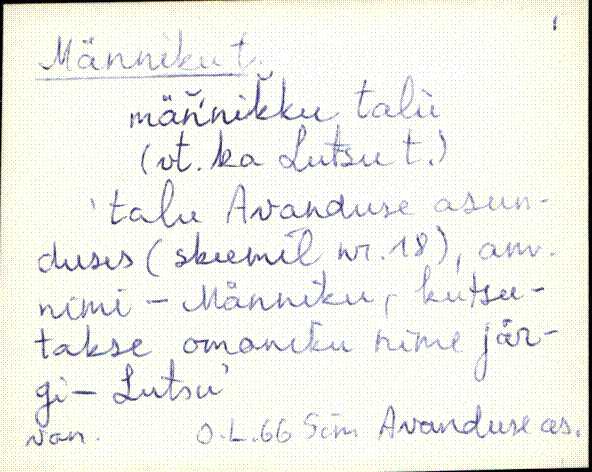 Männiku t.
mäňnikku talu
(vt. ka Lutsu t.)
'talu Avanduse asun-
duses (skeemil nr. 18), amv.
nimi - Männiku, kutsu-
takse omaniku nime jär-
gi - Lutsu'
van. O.L.66 Sim Avanduse as.